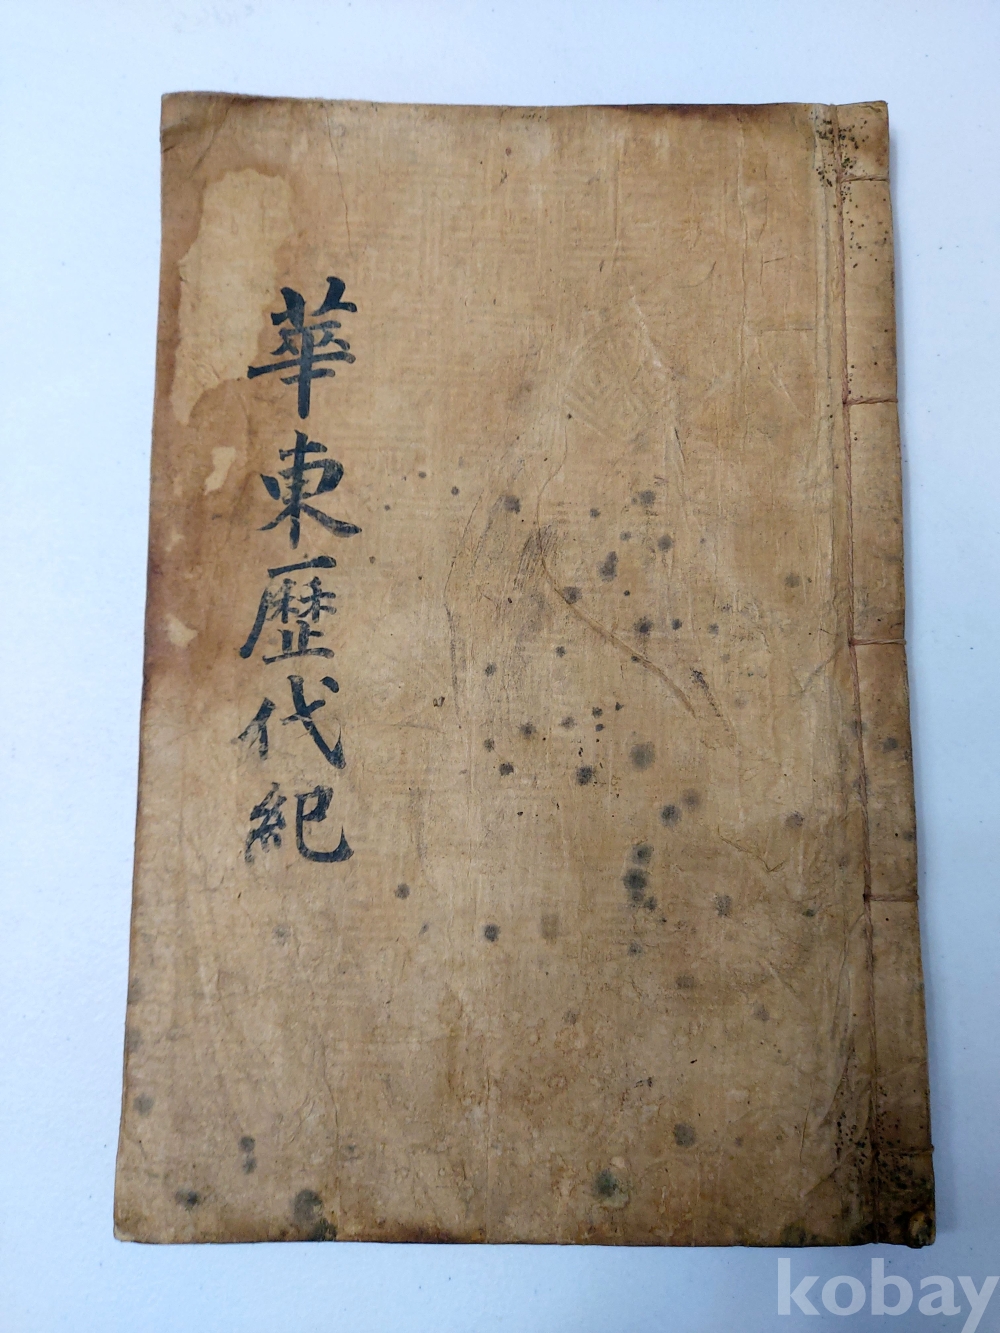 華東歷代紀
kobay